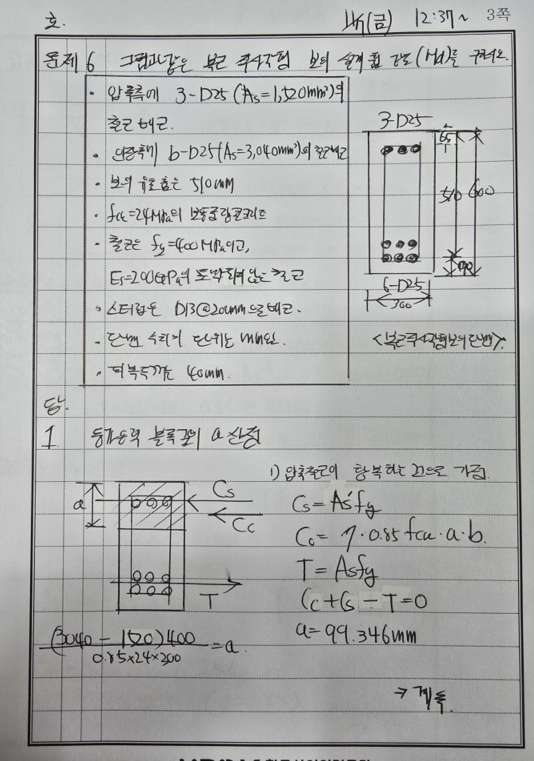 호. 11/7(금) 12:37~ 3쪽
문제 6 그림과 같은 복근 직사각형 보의 설계 휨 강도(Md)를 구하시오.
· 압축측에 3-D25 (As'=1,520mm²)의
철근 배근.
· 인장측에 6-D25 (As=3,040mm²)의 철근배근
· 보의 유효춤은 510mm
· fck=24MPa의 보통중량콘크리트
· 철근은 fy=400MPa이고,
Es=200GPa의 도막되지 않은 철근
· 스터럽은 D13@200mm으로 배근.
· 단면 수치의 단위는 mm임.
· 피복두께는 40mm.
3-D25
65
510
600
90
6-D25
300
<복근직사각형보의 단면>
답.
1 등가응력 블록깊이 a 산정
a
Cs
Cc
T
(3040 - 1520)400
0.85×24×300
=a
1) 압축철근이 항복하는 것으로 가정.
Cs=As'fy
Cc= η·0.85fck·a·b.
T=Asfy
Cc+Cs-T=0
a=99.346mm
→ 계속